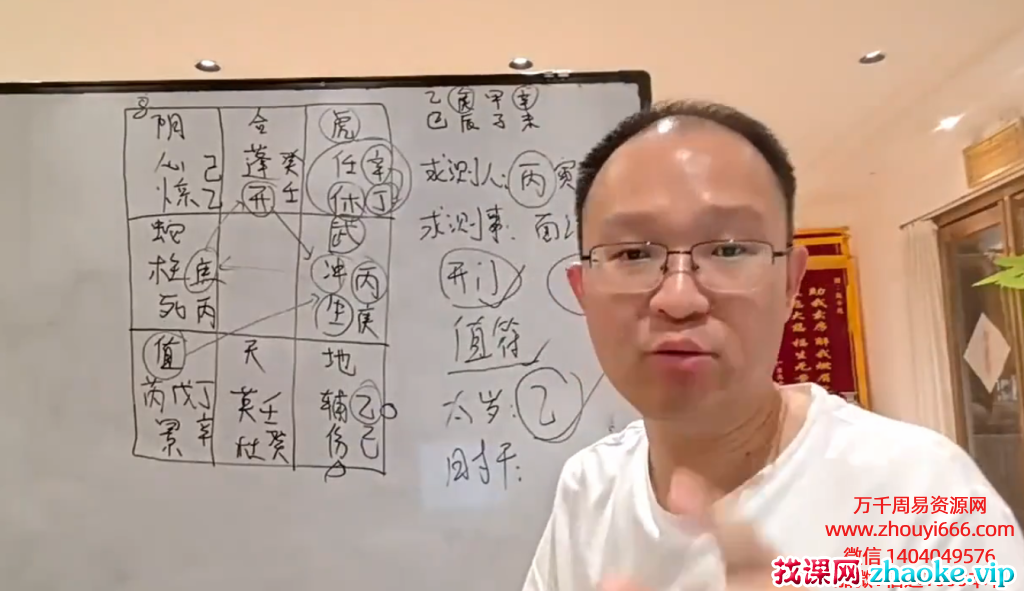 阴 合 虎
心 己 蓬 癸 任 辛
乙 开 壬 休 丁
蛇 武
柱 庚 冲 丙
死 丙 生 庚
值 天 地
芮 戊 丁 英 壬 辅 乙
景 辛 杜 癸 伤 己
乙 庚 甲 辛
巳 辰 子 未
求测人: 丙 寅
求测事: 面
开门
值符
太岁: 乙
时干:
万千周易资源网
www.zhouyi666.com
微信 1404049576
找课网 zhaoke.vip